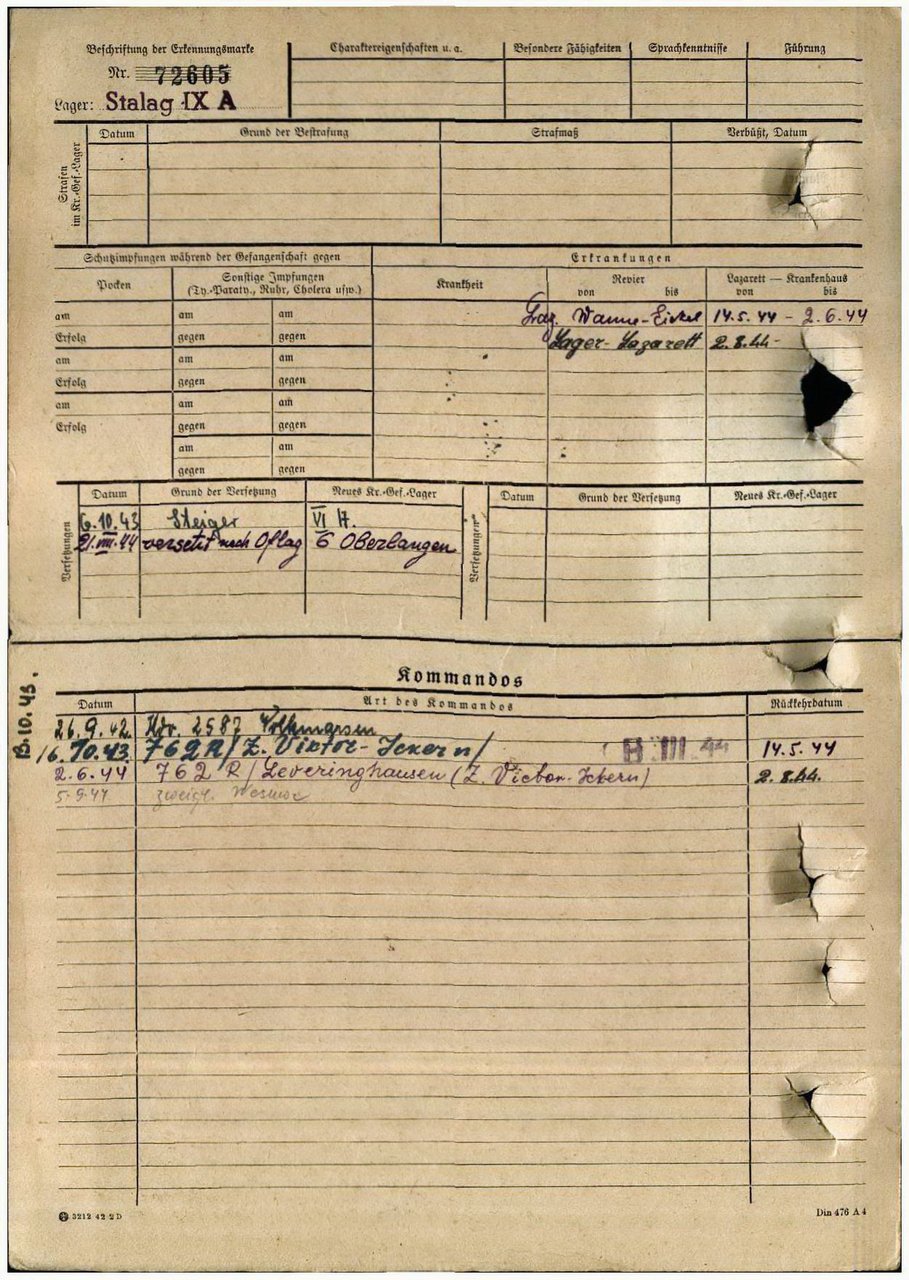 Beschriftung der Erkennungsmarke
Nr. 72605
Lager: Stalag IX A
Charaktereigenschaften u. a. Besondere Fähigkeiten Sprachkenntnisse Führung
Strafen im Kr.-Gef.-Lager
Datum Grund der Bestrafung Strafmaß Verbüßt, Datum
Schutzimpfungen während der Gefangenschaft gegen
Pocken Sonstige Impfungen
(Ty.-Paraty., Ruhr, Cholera usw.)
am am am
Erfolg gegen gegen
am am am
Erfolg gegen gegen
am am am
Erfolg gegen gegen
am am
gegen gegen
Erkrankungen
Krankheit Revier von bis Lazarett — Krankenhaus von bis
Laz. Wanne-Eickel 14.5.44 - 2.6.44
Lager-Lazarett 2.8.44-
Versetzungen
Datum Grund der Versetzung Neues Kr.-Gef.-Lager
6.10.43 Steiger VI H.
21.VIII.44 versetzt nach Oflag 6 Oberlangen
Versetzungen
Datum Grund der Versetzung Neues Kr.-Gef.-Lager
Kommandos
Datum Art des Kommandos Rückkehrdatum
13.10.43.
26.9.42. 2587 Volkmarsen
16.10.43 769 R/ Z. Viktor-Ickern/ III 44 14.5.44
2.6.44 762 R/ Leveringhausen (Z. Victor-Ickern) 2.8.44.
5.9.44
3212 42 2 D
Din 476 A 4